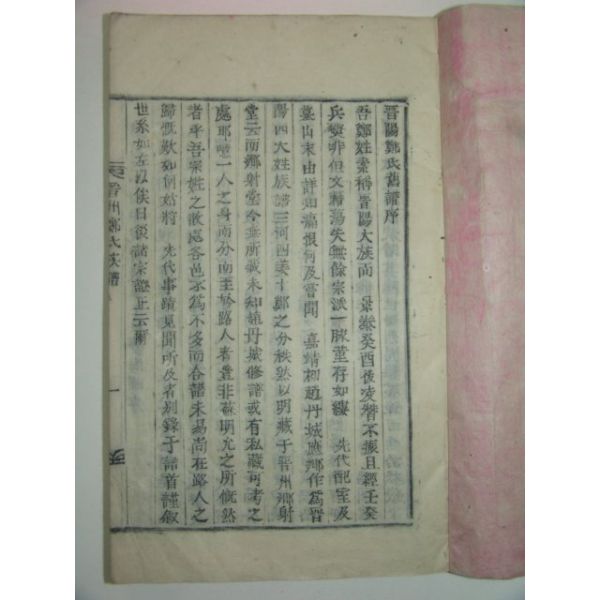 晋陽鄭氏舊譜序
吾鄭姓素稱晋陽大族而 景泰癸酉後凌替不振且經壬癸
兵燹非但文籍蕩失無餘宗派一脉菫存如縷 先代配室及
墓山末由詳知痛恨何及嘗聞 嘉靖初趙丹城應卿作爲晋
陽四大姓族譜三河四姜十鄭之分秩然以明藏于晋州鄉射
堂云而鄉射堂今無所藏未知趙丹城修譜或有私藏可考之
處耶噫一人之身而分而至於路人者豈非蘇明允之所慨然
者乎吾宗姓之散處各邑不爲不多而合譜未易尚在路人之
歸慨歎如何姑將 先代事蹟見聞所及者別錄于譜首謹叙
世系如左以俟日後諸宗證正云爾
晋州鄭氏族譜
一